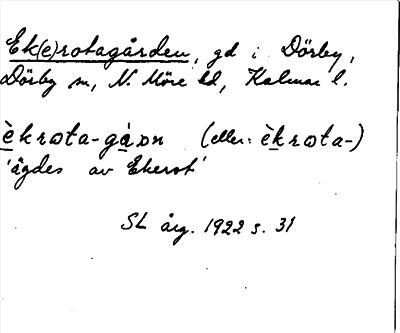 Ek(e)rotagården, gd i Dörby,
Dörby sn, N. Möre hd, Kalmar l.
èkrωta-gàɒn (eller: èkrωta-)
'ägdes av Ekerot'
SL årg. 1922 s. 31